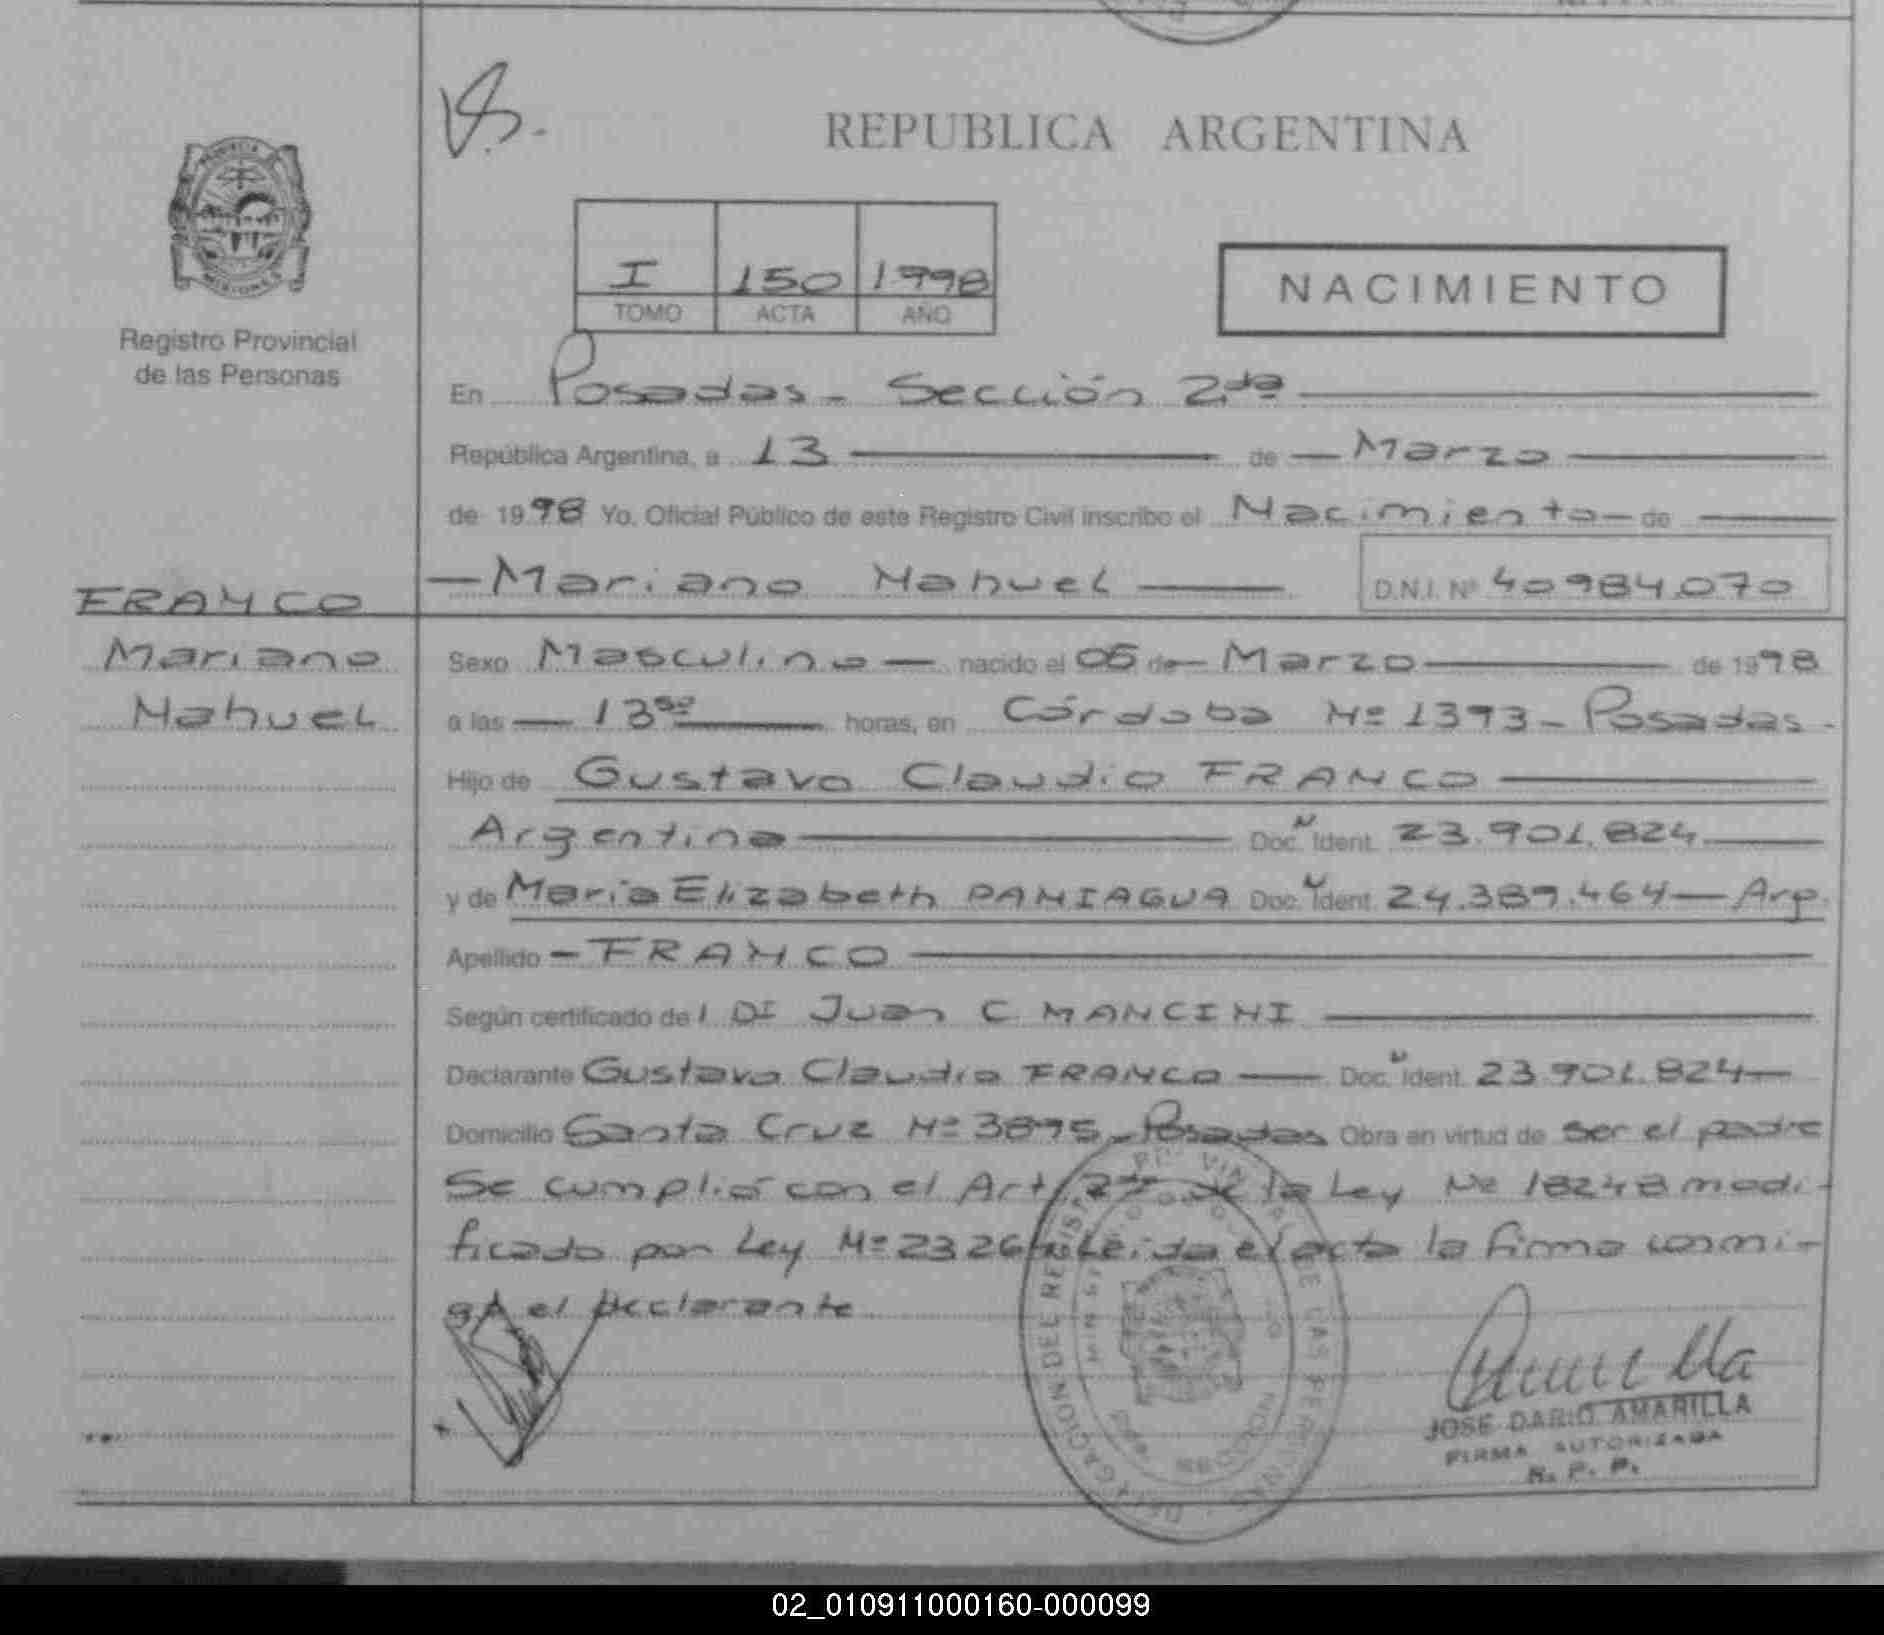 REPUBLICA ARGENTINA
I 150 1998
TOMO ACTA AÑO
NACIMIENTO
Registro Provincial
de las Personas
En Posadas - Sección 2da
República Argentina, a 13 de Marzo
de 1998 Yo, Oficial Público de este Registro Civil inscribo el Nacimiento de
Mariano Nahuel D.N.I. Nº 40984070
FRANCO
Mariano
Nahuel
Sexo Masculino nacido el 05 de Marzo de 1998
a las 13 50 horas, en Córdoba Nº 1393 - Posadas.
Hijo de Gustavo Claudio FRANCO
Argentina Doc. Ident. 23.901.824
y de María Elizabeth PANIAGUA Doc. Ident. 24.389.464 - Arg.
Apellido - FRANCO
Según certificado de Juan C MANCINI
Declarante Gustavo Claudio FRANCO Doc. Ident. 23.901.824
Domicilio Santa Cruz Nº 3895 - Posadas Obra en virtud de ser el padre
Se cumplió con el Art. 2do de la Ley Nº 18248 modi-
ficado por Ley Nº 23264. Leida el acta la firma conmi-
go el declarante
DELEGACION DEL REGISTRO PROVINCIAL DE LAS PERSONAS
JOSE DARIO AMARILLA
FIRMA AUTORIZADA
R. P. P.
02_010911000160-000099